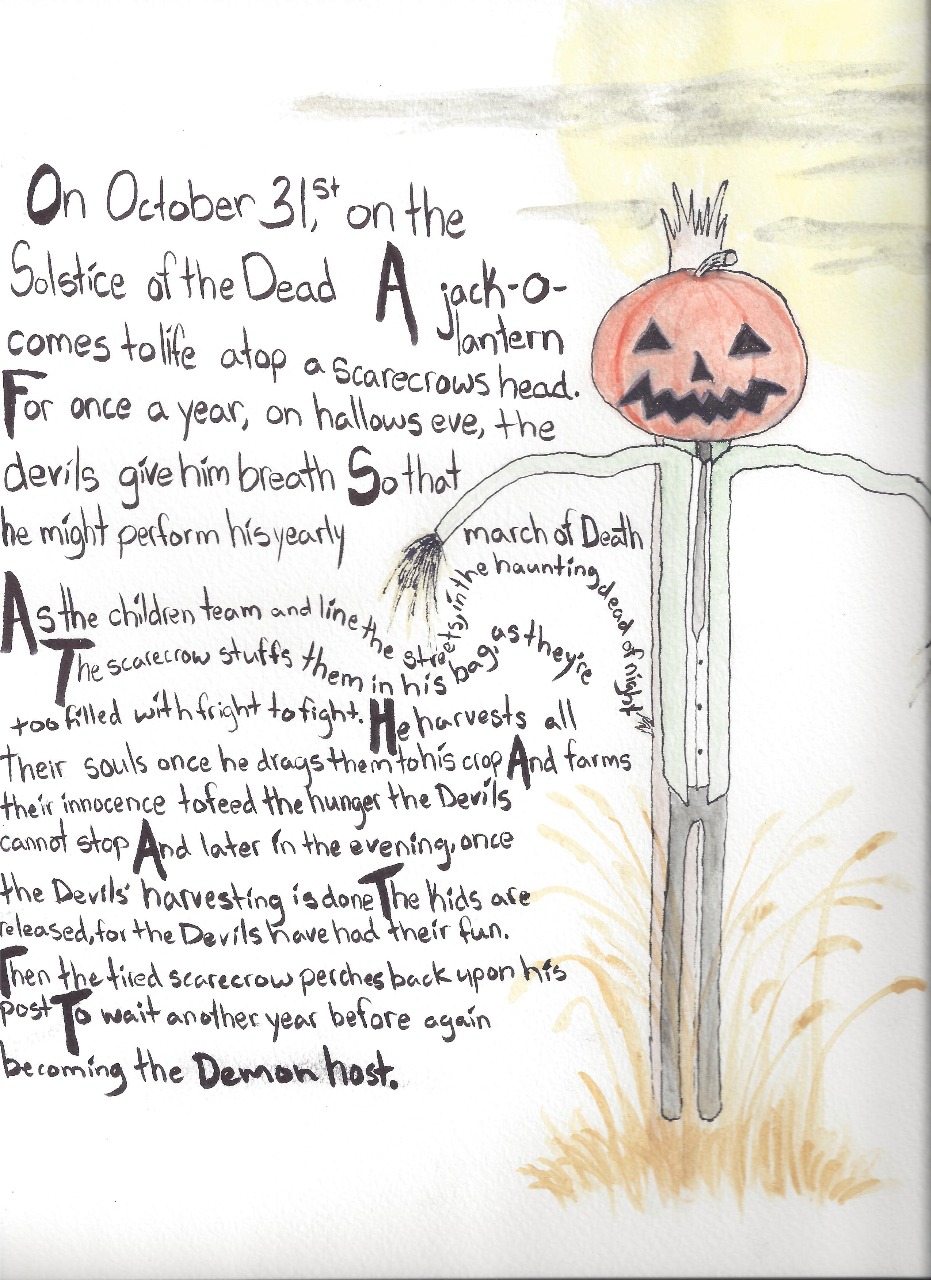 On October 31,st on the
Solstice of the Dead A jack-o-
lantern
comes to life atop a scarecrows head.
For once a year, on hallows eve, the
devils give him breath So that
he might perform his yearly march of Death
As the children team and line the streets, in the haunting dead of night
The scarecrow stuffs them in his bag, as they're
too filled with fright to fight. He harvests all
Their souls once he drags them to his crop And farms
their innocence to feed the hunger the Devils
cannot stop And later in the evening, once
the Devils' harvesting is done The kids are
released, for the Devils have had their fun.
Then the tired scarecrow perches back upon his
post To wait another year before again
becoming the Demon host.